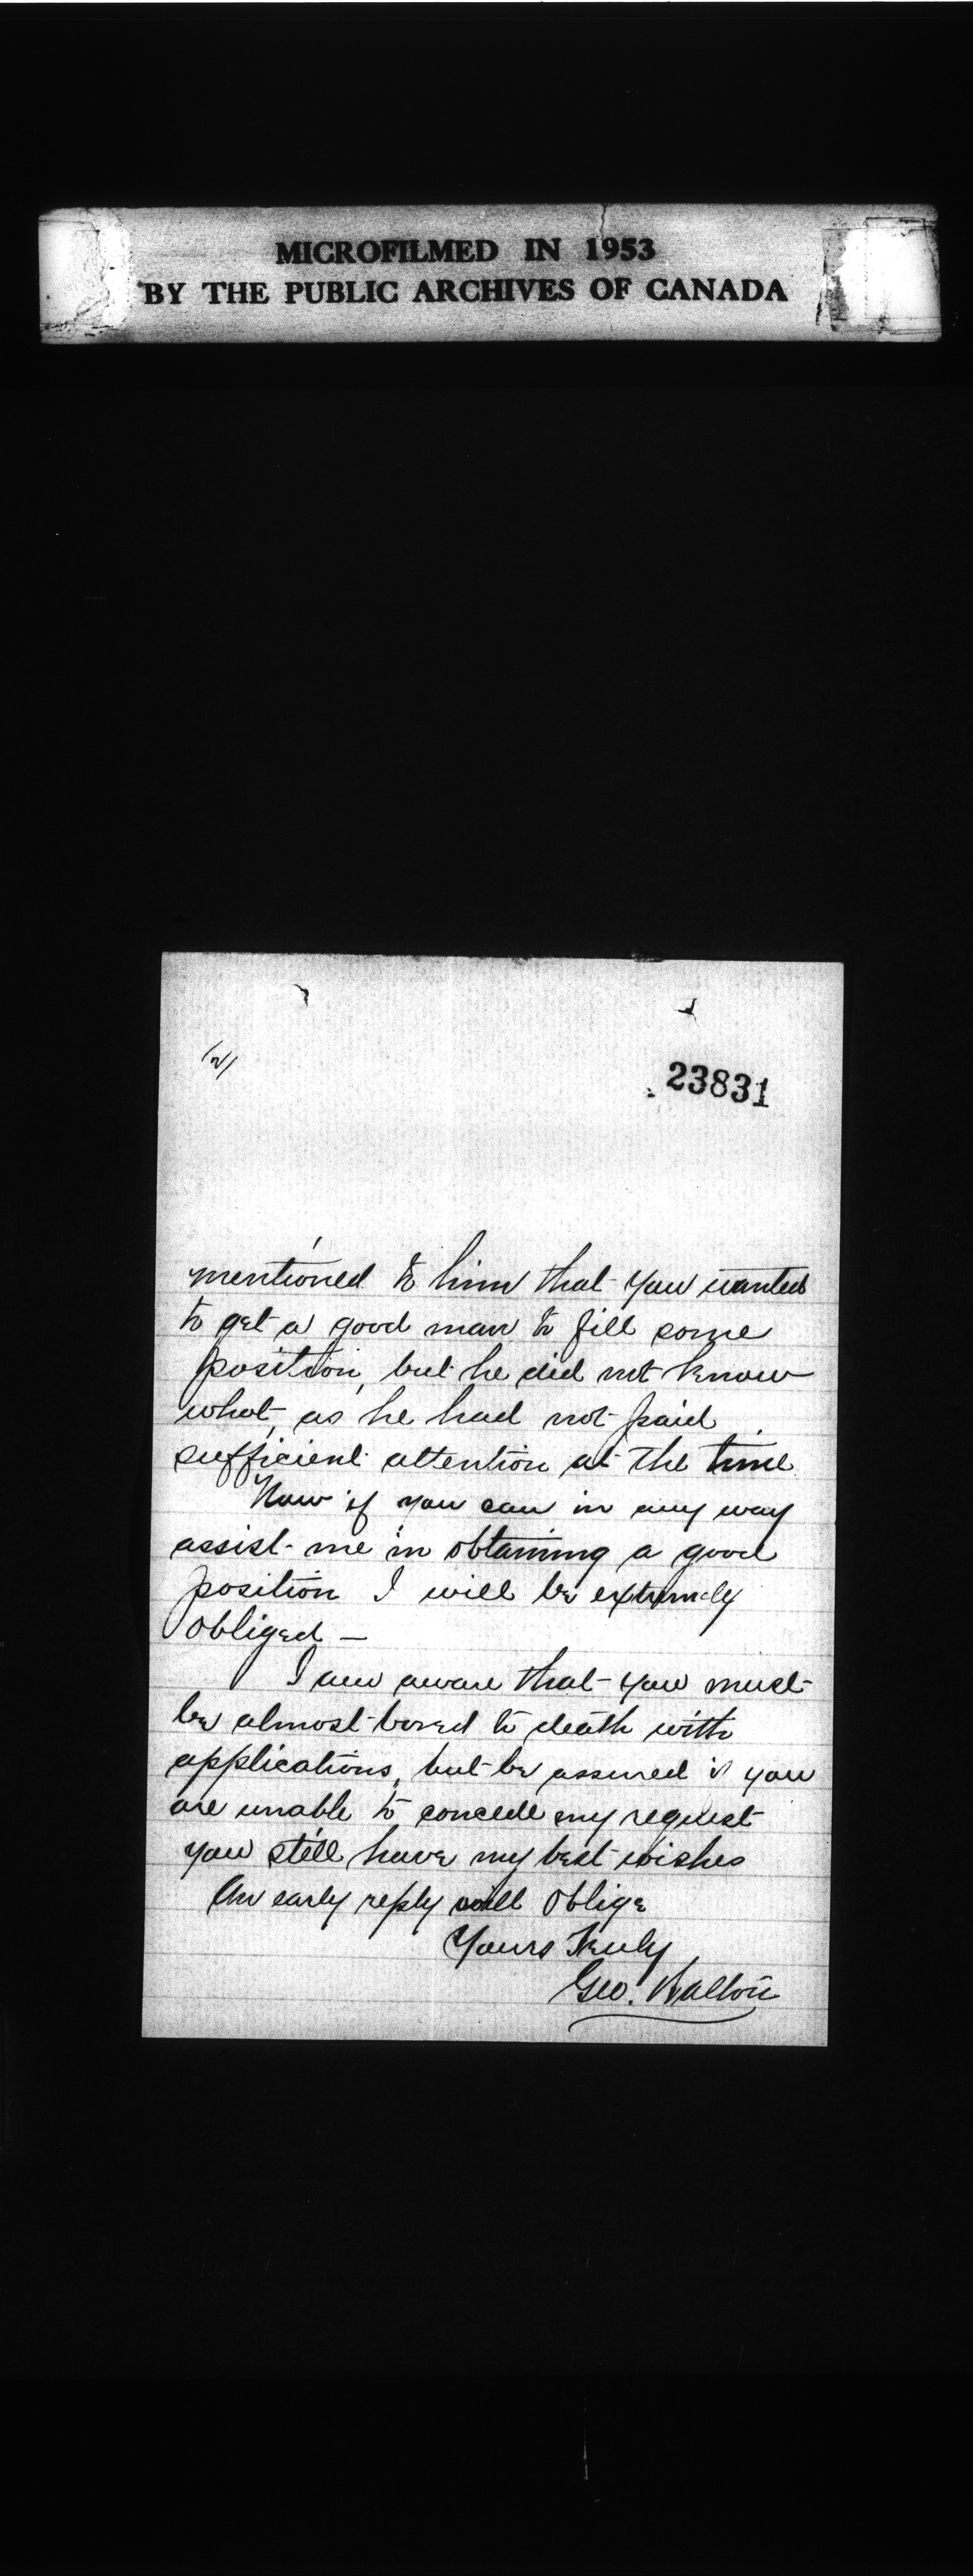 MICROFILMED IN 1953
BY THE PUBLIC ARCHIVES OF CANADA
(2)
23831
mentioned to him that you wanted
to get a good man to fill some
position, but he did not know
what, as he had not paid
sufficient attention at the time
Now if you can in any way
assist me in obtaining a good
position I will be extremely
obliged —
I am aware that you must
be almost bored to death with
applications, but be assured if you
are unable to concede my request
you still have my best wishes
An early reply will oblige
Yours Truly
Geo.